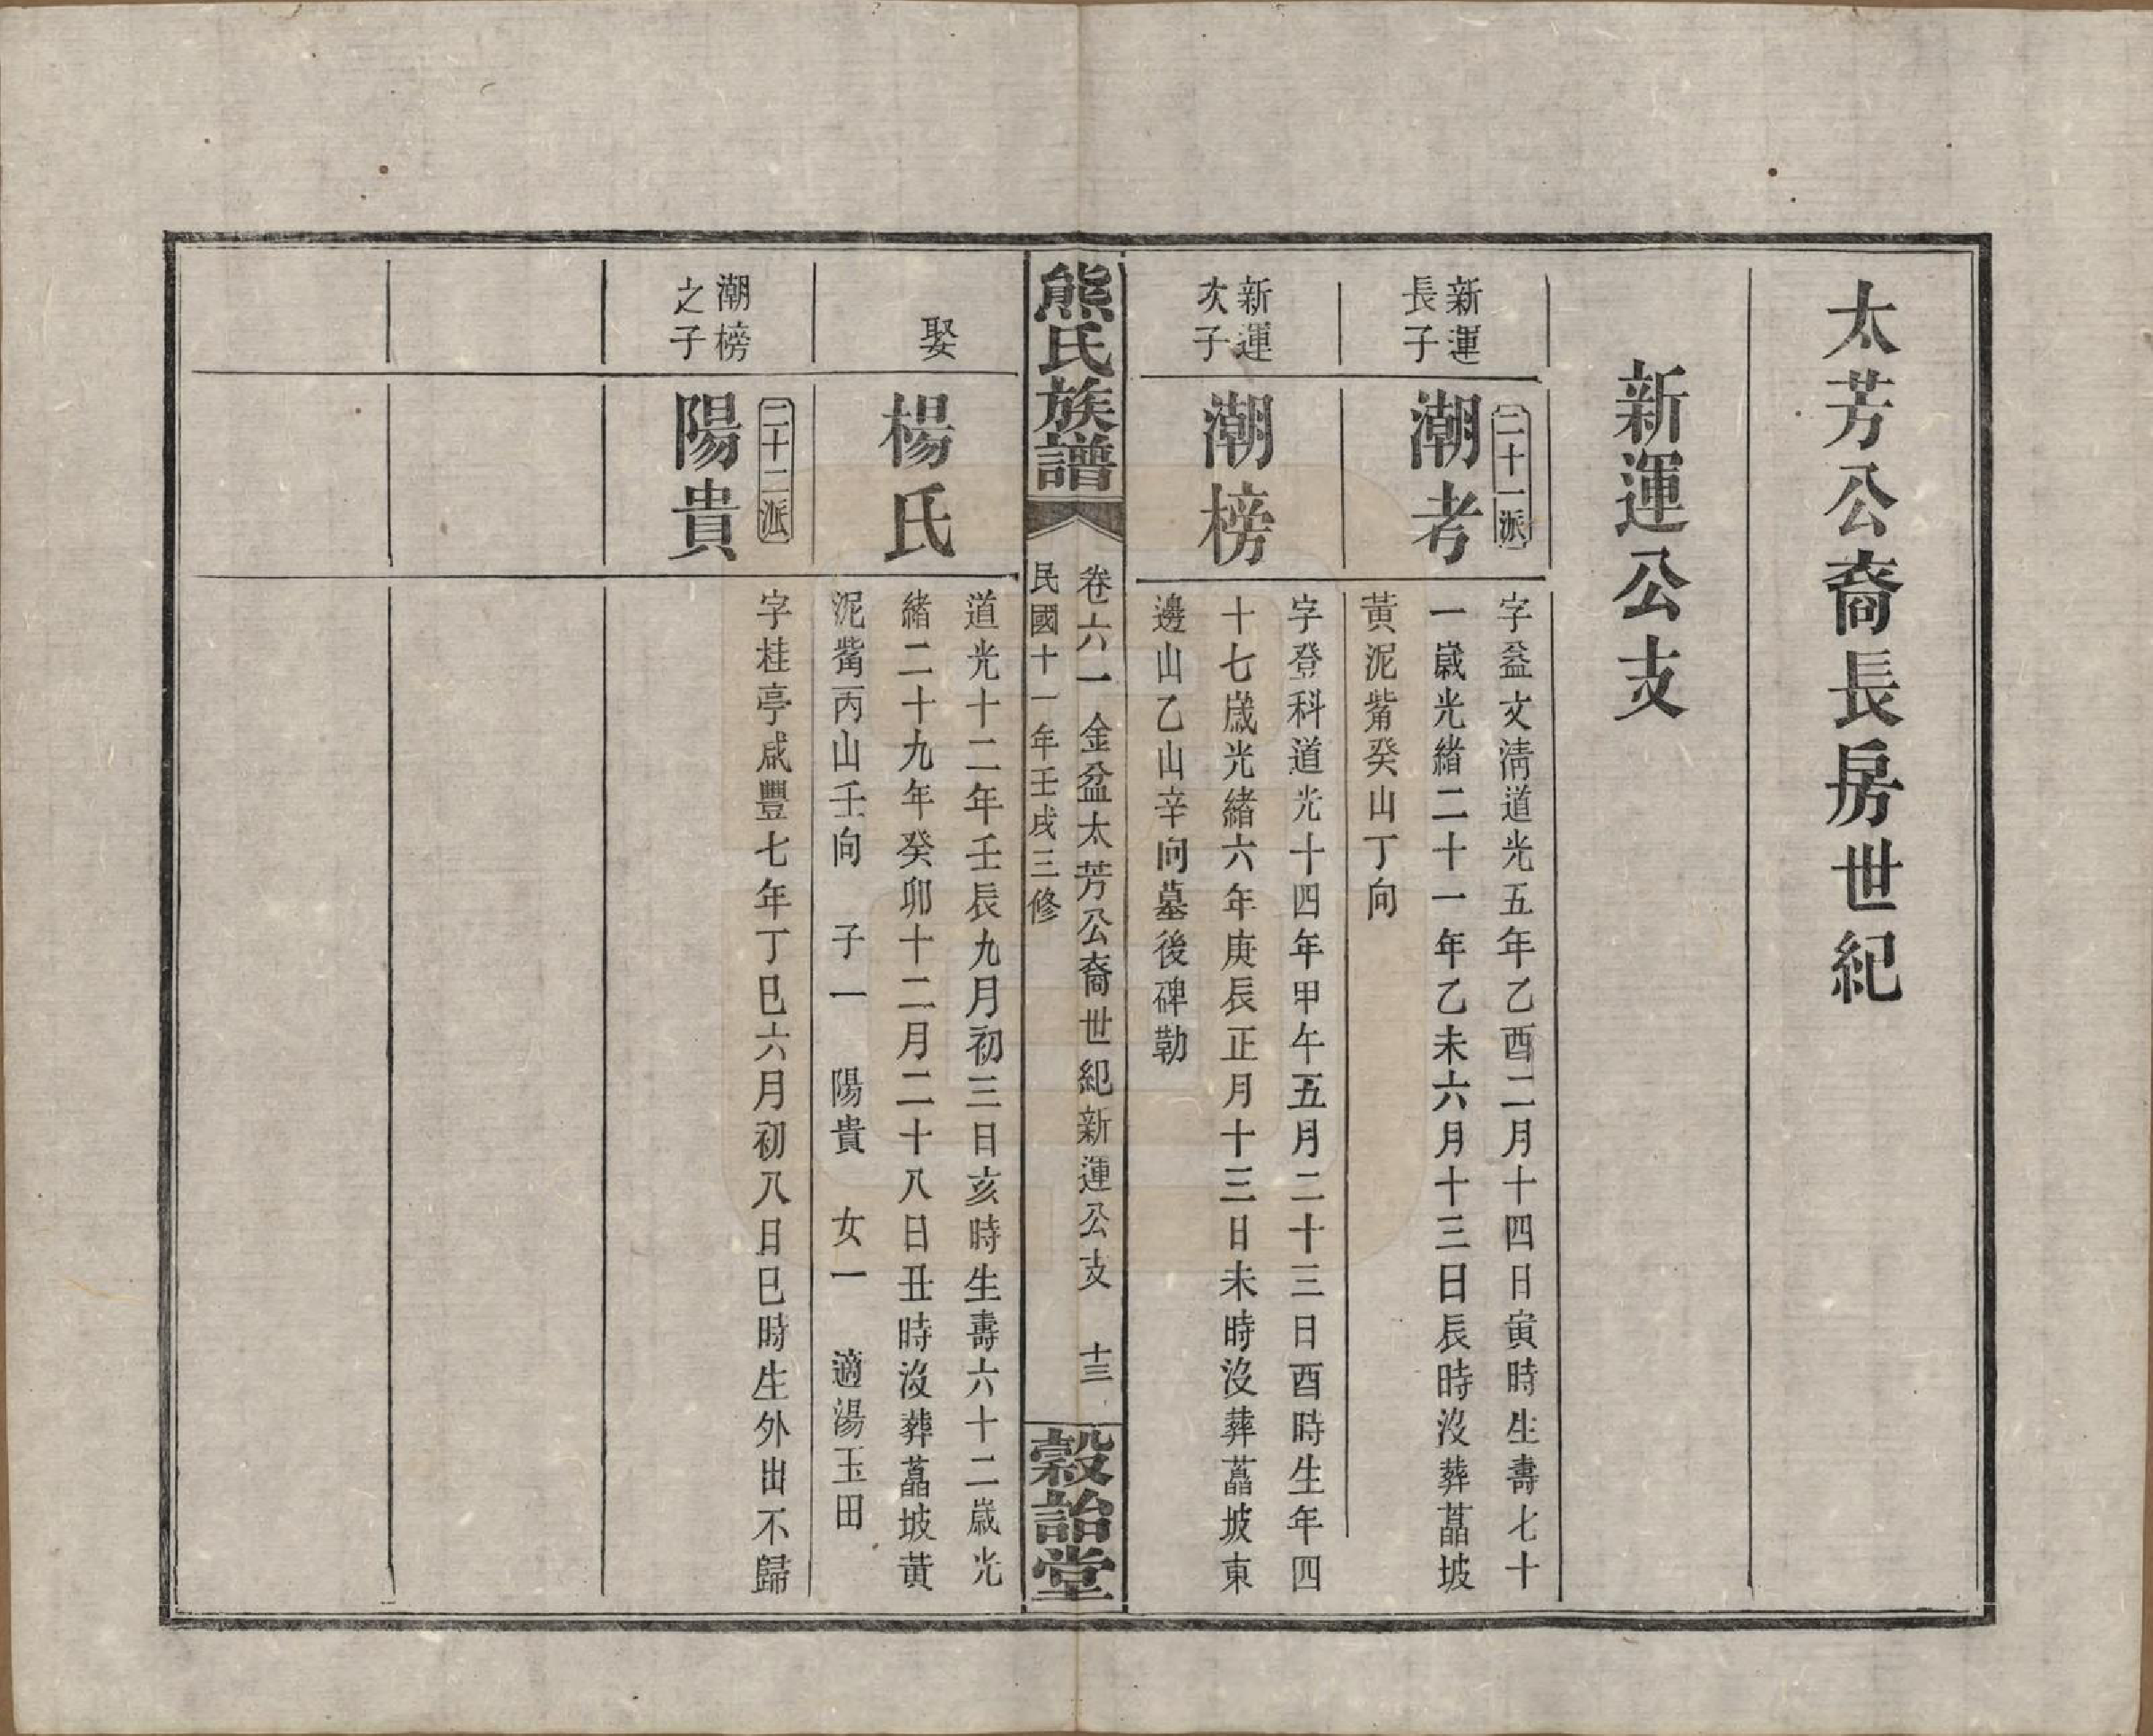 太芳公裔長房世紀
新運公支
新運
長子
二十一派
潮考
字益文淸道光五年乙酉二月十四日寅時生壽七十
一歲光緒二十一年乙未六月十三日辰時沒葬藠坡
黃泥觜癸山丁向
新運
次子
潮榜
字登科道光十四年甲午五月二十三日酉時生年四
十七歲光緒六年庚辰正月十三日未時沒葬藠坡東
邊山乙山辛向墓後碑勒
熊氏族譜
卷六一金盆太芳公裔世紀新運公支 十三
民國十一年壬戌三修
穀詒堂
娶
楊氏
道光十二年壬辰九月初三日亥時生壽六十二歲光
緒二十九年癸卯十二月二十八日丑時沒葬藠坡黃
泥觜丙山壬向 子一 陽貴 女一 適湯玉田
潮榜
之子
二十二派
陽貴
字桂亭咸豐七年丁巳六月初八日巳時生外出不歸